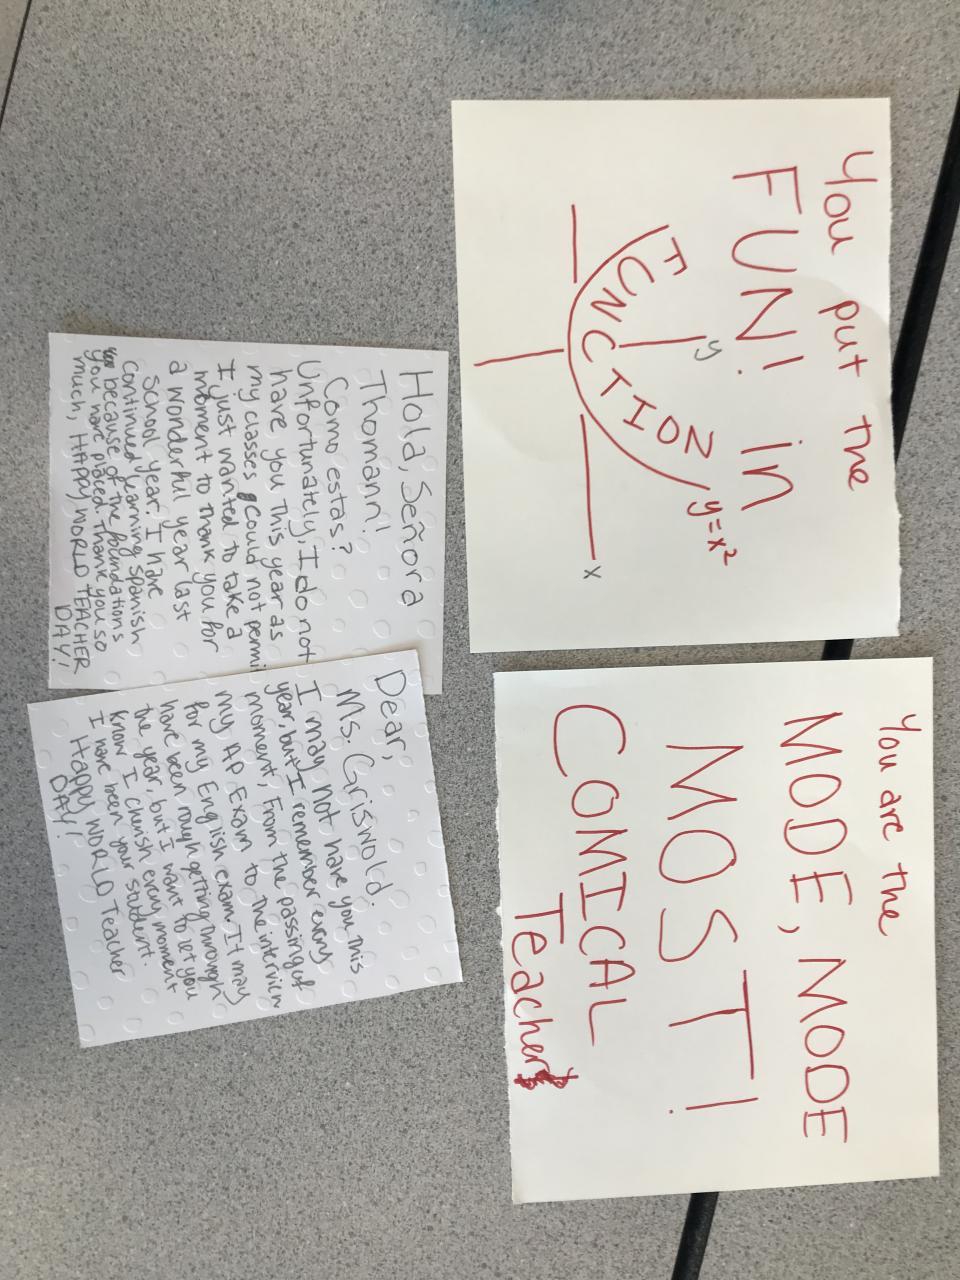 You put the
FUN! in
y
FUNCTION
y=x²
x
You are the
MODE, MODE
MOST!
COMICAL
Teacher
Hola, Señora
Thomann!
Como estas?
Unfortunately, I do not
have you this year as
my classes could not permi
I just wanted to take a
moment to thank you for
a wonderful year last
School year. I have
continued learning spanish
because of the foundations
you have placed. Thank you so
much, HAPPY WORLD TEACHER
DAY!
Dear,
Ms. Griswold.
I may not have you this
year, but I remember every
moment, from the passing of
my AP Exam to the interview
for my English exam. It may
have been rough getting through
the year, but I want to let you
know I cherish every moment
I have been your student.
Happy WORLD Teacher
DAY!